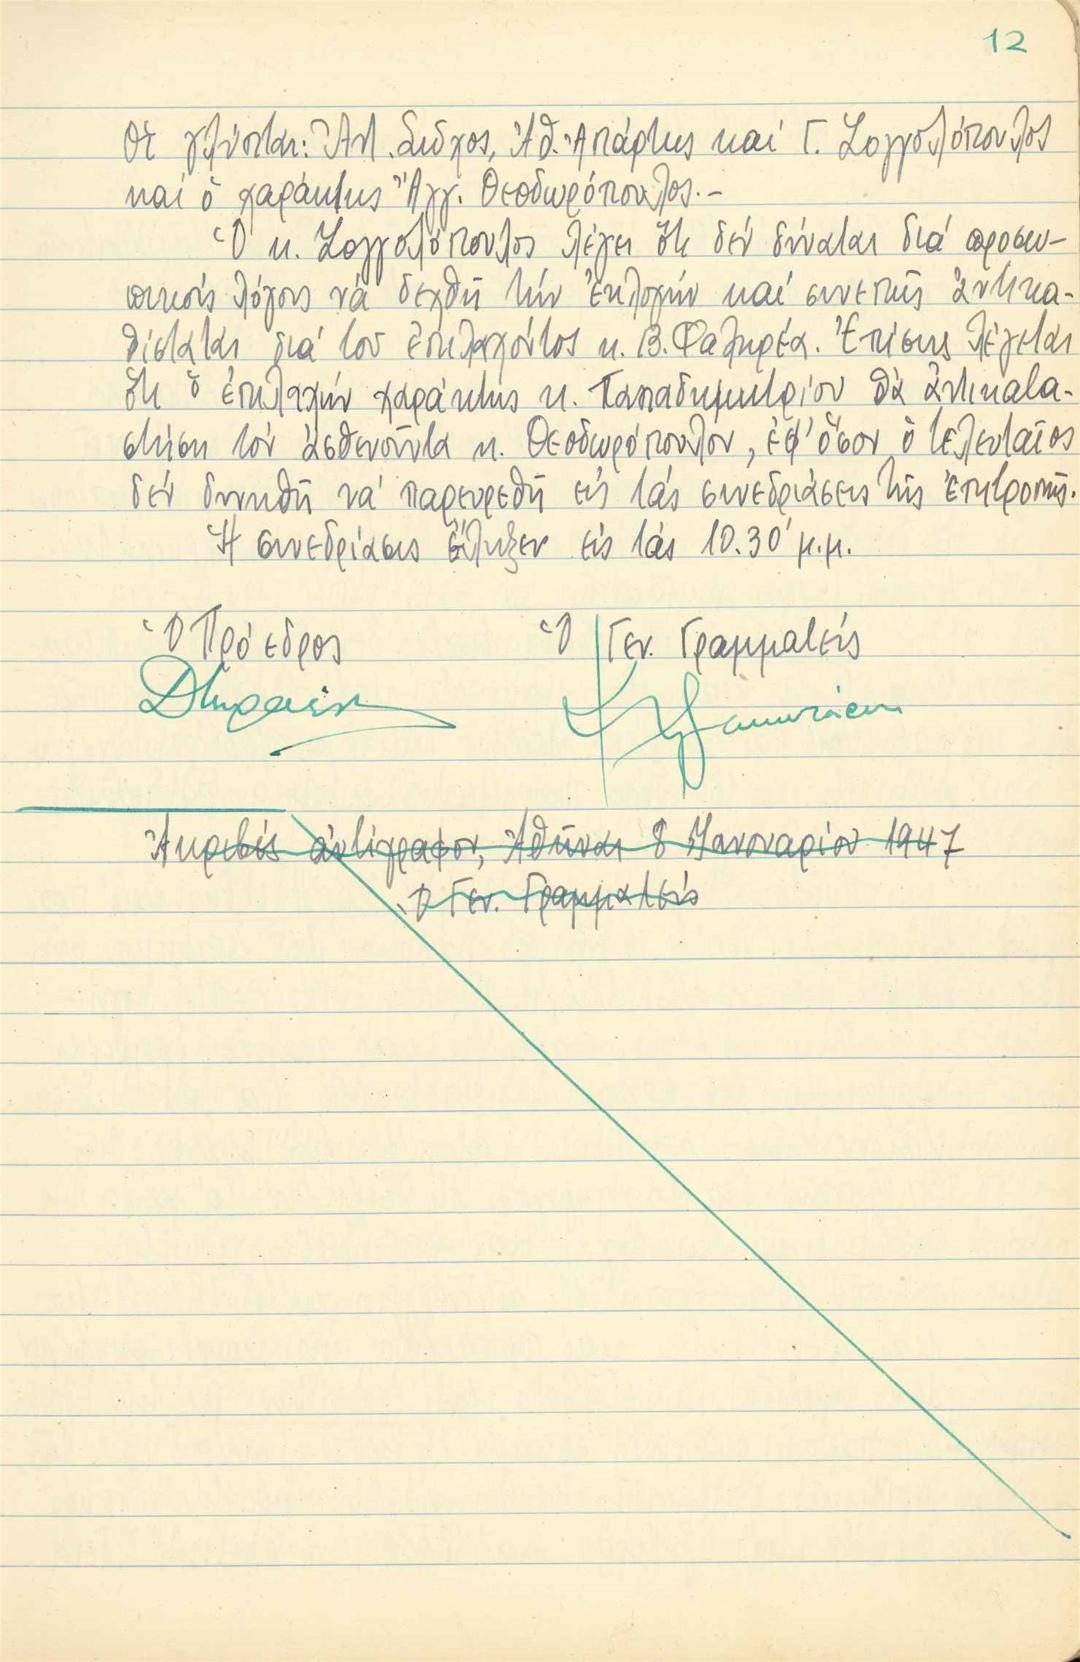 12
Οἱ γλύπται: Ἀντ. Σῶχος, Ἀθ. Ἀπάρτης καί Γ. Ζογγολόπουλος
καί ὁ χαράκτης Ἄγγ. Θεοδωρόπουλος.-
Ὁ κ. Ζογγολόπουλος λέγει ὅτι δέν δύναται διά προσω-
πικούς λόγους νά δεχθῆ τήν ἐκλογήν καί συνεπῶς ἀντικα-
θίσταται διά τοῦ ἐπιλαχόντος κ. Β. Φαληρέα. Ἐπίσης λέγεται
ὅτι ὁ ἐπιλαχών χαράκτης κ. Παπαδημητρίου θά ἀντικατα-
στήση τόν ἀσθενοῦντα κ. Θεοδωρόπουλον, ἐφ' ὅσον ὁ τελευταῖος
δέν δυνηθῆ νά παρευρεθῆ εἰς τάς συνεδριάσεις τῆς Ἐπιτροπῆς.
Ἡ συνεδρίασις ἔληξεν εἰς τάς 10.30' μ.μ.
Ὁ Πρόεδρος Ὁ Γεν. Γραμματεύς
Ἀκριβές ἀντίγραφον, Ἀθῆναι 8 Ἰανουαρίου 1947
Ὁ Γεν. Γραμματεύς